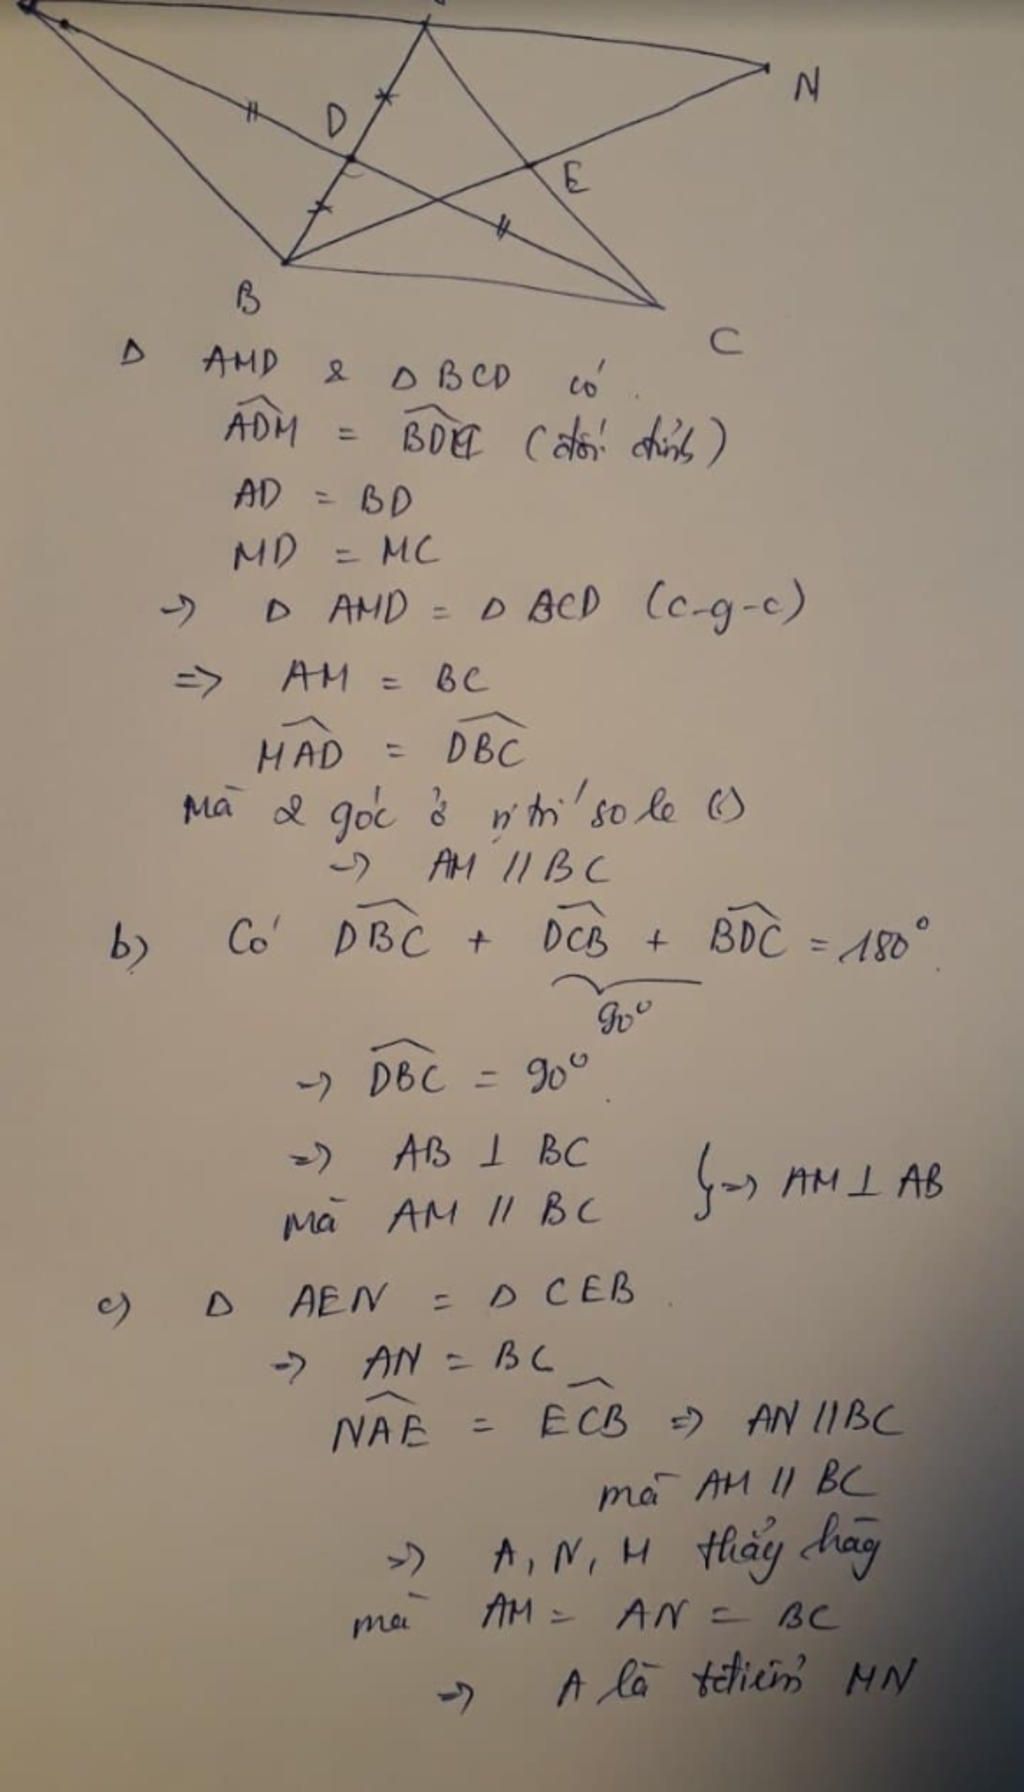 N
D
E
B
C
Δ AMD & Δ BCD có
ADM = BDC (đối đỉnh)
AD = BD
MD = MC
→ Δ AMD = Δ BCD (c-g-c)
=> AM = BC
MAD = DBC
Mà 2 góc ở vị trí so le (.)
→ AM // BC
b) Có DBC + DCB + BDC = 180°
90°
→ DBC = 90°
=> AB ⊥ BC
mà AM // BC } => AM ⊥ AB
c) Δ AEN = Δ CEB
=> AN = BC
NAE = ECB => AN // BC
mà AM // BC
=> A, N, M thẳg hàg
mà AM = AN = BC
=> A là tđiểm MN